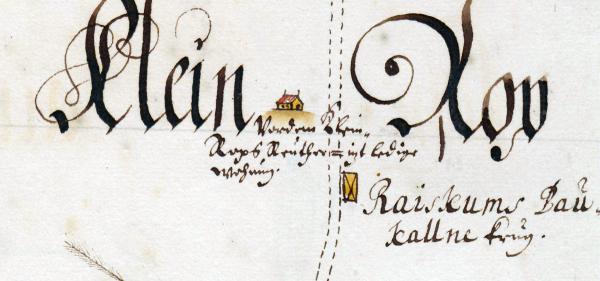 Klein Rop
Vordem Klein-
Rops Reuther= izt ledige
wohnung.
Raiskums Bau=
kallne krug.